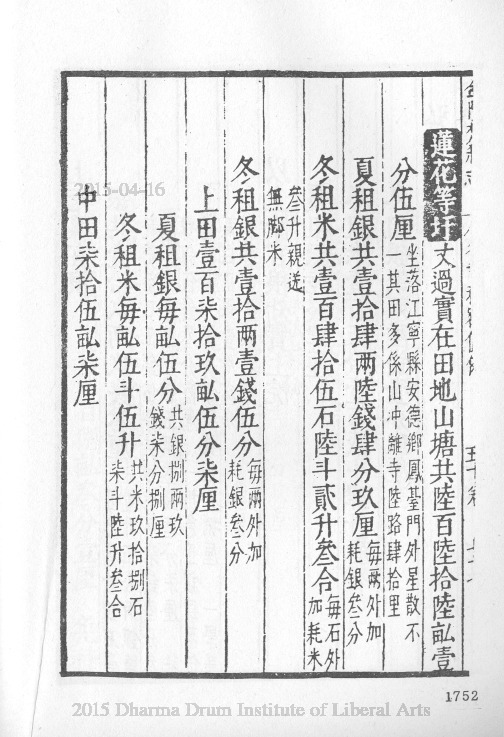 蓮花等圩丈過實在田地山塘共陸百陸拾陸畆壹
分伍厘坐落江寧縣安德鄉鳳臺門外星散不
一其田多係山冲離寺陸路肆拾里
夏租銀共壹拾肆兩陸錢肆分玖厘每兩外加
耗銀叁分
冬租米共壹百肆拾伍石陸斗貳升叁合每石外
加耗米
叁升親送
無脚米
冬租銀共壹拾兩壹錢伍分每兩外加
耗銀叁分
上田壹百柒拾玖畆伍分柒厘
夏租銀每畆伍分共銀捌兩玖
錢柒分捌厘
冬租米每畆伍斗伍升共米玖拾捌石
柒斗陸升叁合
中田柒拾伍畆柒厘
1752
2015-04-16
2015 Dharma Drum Institute of Liberal Arts